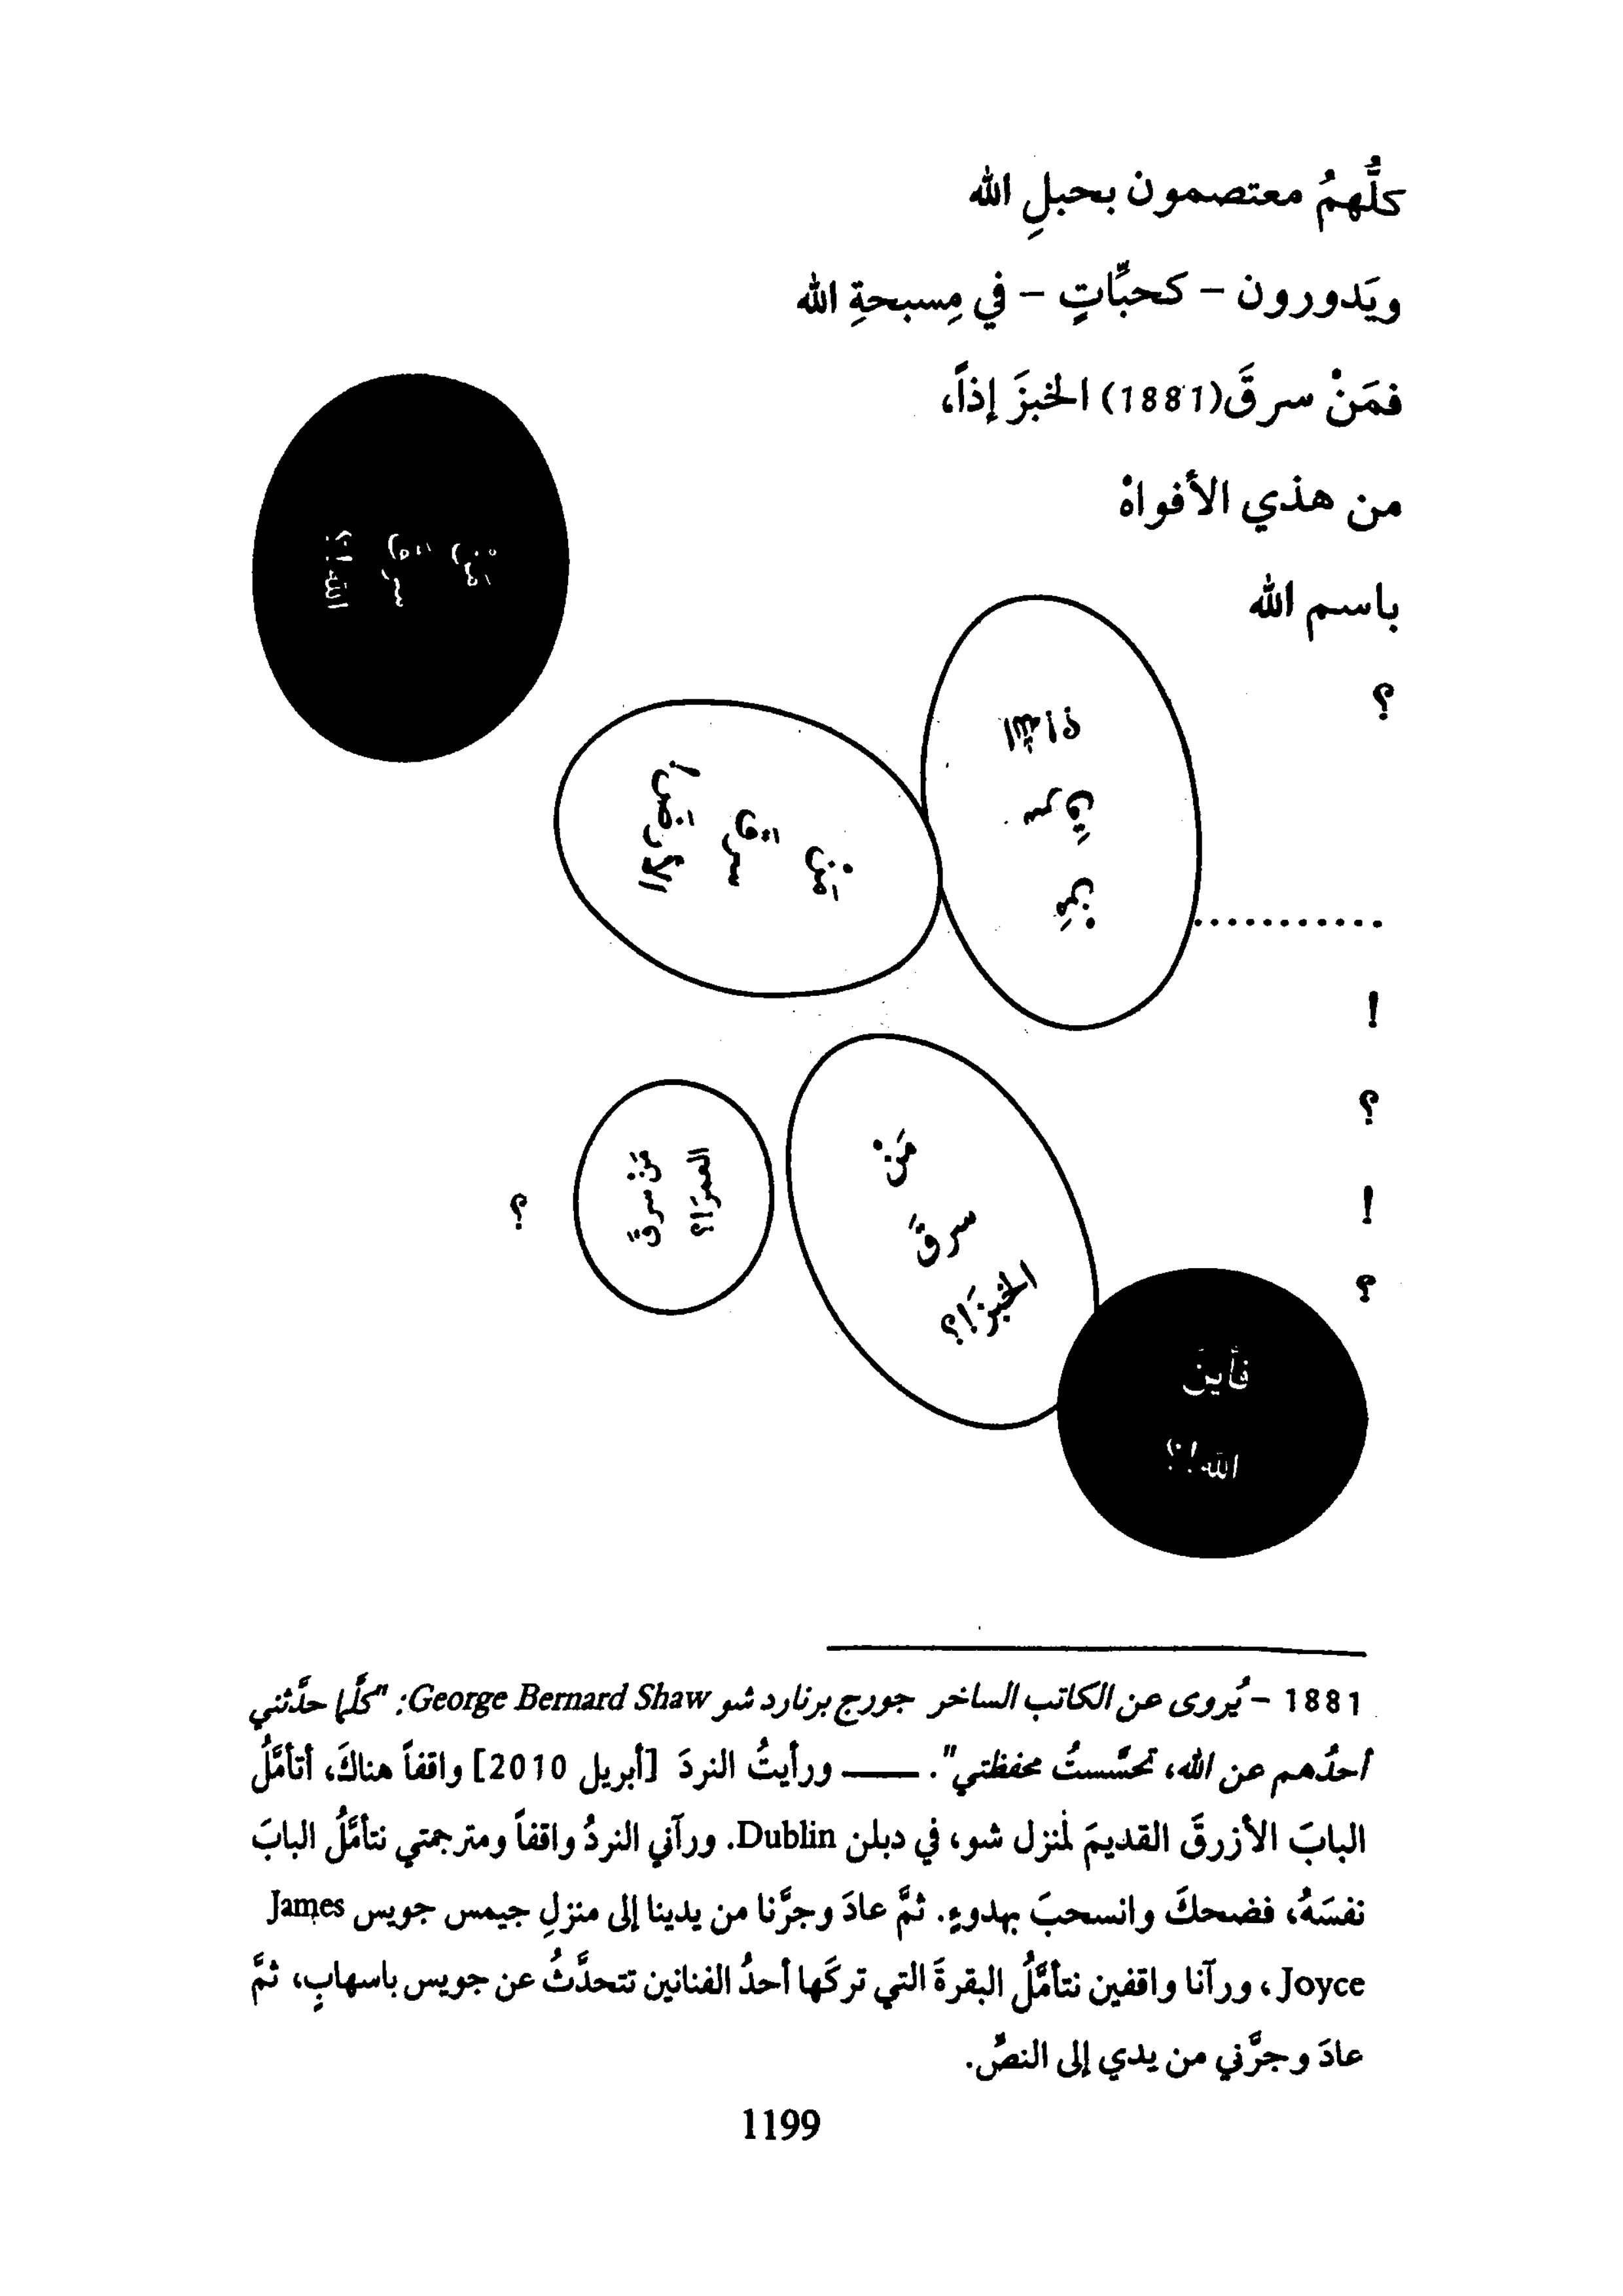 كلُّهمُ معتصمون بحبلِ الله
ويَدورون – كحبَّاتٍ – في مِسبحةِ الله
فمَنْ سرقَ(1881) الخبزَ إذاً،
من هذي الأفواهْ
باسم الله
؟
مَنْ
سرقَ
الله!؟
مَنْ
سرقَ
الأرضَ!
مَنْ
سرقَ
...........
!
؟
!
؟
مَنْ
سرقَ
الخبزَ!؟
مَنْ سرقَ
العمرَ!؟
؟
فأينَ
الله!؟
1881 – يُروى عن الكاتب الساخر جورج برنارد شو George Bernard Shaw: "كلَّما حدَّثني
أحدُهم عن الله، تحسَّستُ محفظتي". ـــــــ ورأيتُ النردَ [أبريل 2010] واقفاً هناكَ، أتأمَّلُ
البابَ الأزرقَ القديمَ لمنزل شو، في دبلن Dublin. ورآني النردُ واقفاً ومترجمتي نتأمَّلُ البابَ
نفسَهُ، فضحكَ وانسحبَ بهدوءٍ. ثمَّ عادَ وجرَّنا من يدينا إلى منزلِ جيمس جويس James
Joyce، ورآنا واقفين نتأمَّلُ البقرةَ التي تركَها أحدُ الفنانين تتحدَّثُ عن جويس باسهابٍ، ثمَّ
عادَ وجرَّني من يدي إلى النصِّ.
1199